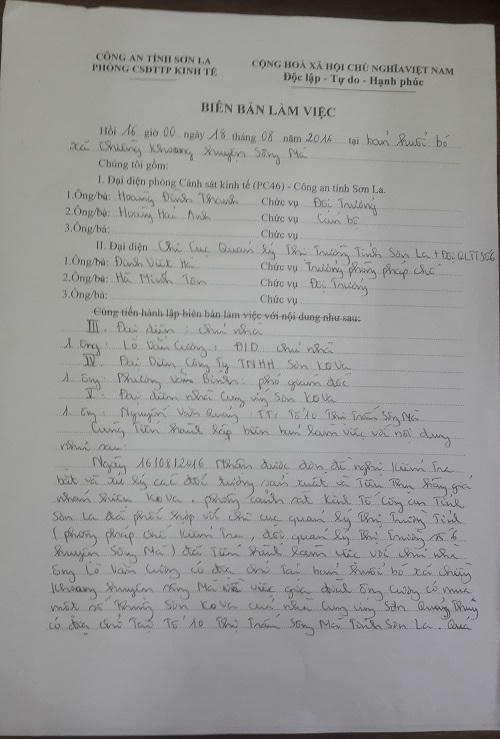 CÔNG AN TỈNH SƠN LA
PHÒNG CSĐTTP KINH TẾ
CỘNG HOÀ XÃ HỘI CHỦ NGHĨA VIỆT NAM
Độc lập - Tự do - Hạnh phúc
BIÊN BẢN LÀM VIỆC
Hồi 16 giờ 00 ngày 18 tháng 08 năm 2016 tại bản huổi bó
xã Chiềng Khoong huyện Sông Mã
Chúng tôi gồm:
I. Đại diện phòng Cảnh sát kinh tế (PC46) - Công an tỉnh Sơn La.
1.Ông/bà: Hoàng Đình Thanh Chức vụ Đội Trưởng
2.Ông/bà: Hoàng Hải Anh Chức vụ Cán bộ
3.Ông/bà: Chức vụ
II. Đại diện Chi Cục Quản lý Thị Trường Tỉnh Sơn La + Đội QLTT Số 6
1.Ông/bà: Đinh Việt Hà Chức vụ Trưởng phòng pháp chế
2.Ông/bà: Hà Minh Tân Chức vụ Đội Trưởng
3.Ông/bà: Chức vụ
Cùng tiến hành lập biên bản làm việc với nội dung như sau:
III. Đại diện: chủ nhà
1. ông: Lò Văn Cương: ĐD chủ nhà
IV. Đại Diện Công Ty TNHH Sơn KOVA
1. ông: Phương Văn Bính: phó giám đốc
V. Đại diện nhà Cung ứng Sơn KOVA
1. ông: Nguyễn Văn Quảng: TT: Tổ 10 Thị Trấn Sông Mã
Cùng Tiến hành lập biên bản làm việc với nội dung
như sau:
Ngày 16/08/2016 Nhận được đơn đề nghị Kiểm Tra
bắt và xử lý các đối tượng sản xuất và Tiêu Thụ hàng giả
nhãn hiệu KOVA. phòng cảnh sát kinh Tế Công an Tỉnh
Sơn La đã phối hợp với chi cục quản lý Thị Trường Tỉnh
(phòng pháp chế Kiểm Tra, đội quản lý Thị Trường số 6
huyện Sông Mã) đã Tiến hành làm việc với chủ nhà
ông Lò Văn Cương có địa chỉ Tại bản huổi bó xã chiềng
Khoong huyện sông Mã về việc gia đình ông Cương có mua
một số thùng Sơn KOVA của nhà cung ứng Sơn Quảng Thủy
có địa chỉ Tại Tổ 10 Thị Trấn Sông Mã Tỉnh Sơn La. Quá